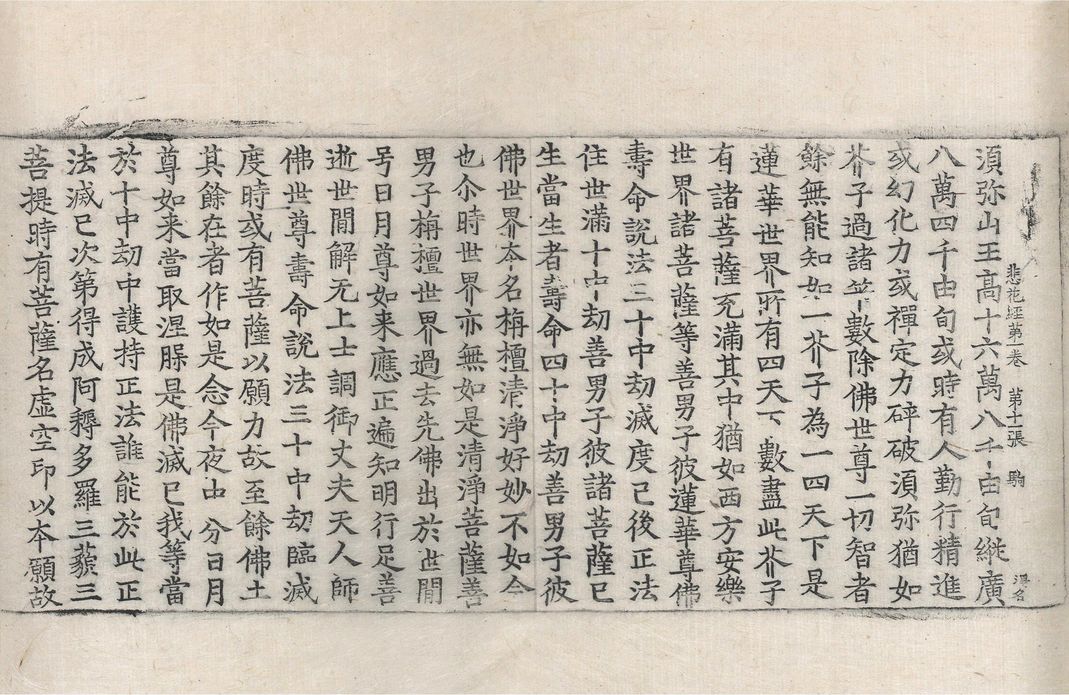 悲花經第一卷　第十一張　駒
須弥山王髙十六萬八千由旬縱廣
八萬四千由旬或時有人勤行精進
或幻化力或禪定力碎破湏弥猶如
芥子過諸筭數除佛世尊一切智者
餘無能知如一芥子為一四天下是
蓮華世界所有四天下數盡此芥子
有諸菩薩充滿其中猶如西方安樂
世界諸菩薩等善男子彼蓮華尊佛
壽命說法三十中劫滅度已後正法
住世滿十中劫善男子彼諸菩薩已
生當生者壽命四十中劫善男子彼
佛世界本名栴檀清淨好妙不如今
也尒時世界亦無如是清淨菩薩善
男子栴檀世界過去先佛出於世間
号日月尊如来應正遍知明行足善
逝世間解无上士調御丈夫天人師
佛世尊壽命說法三十中劫臨滅
度時或有菩薩以願力故至餘佛土
其餘在者作如是念今夜中分日月
尊如来當取涅槃是佛滅已我等當
於十中劫中護持正法誰能於此正
法滅已次第得成阿耨多羅三藐三
菩提時有菩薩名虚空印以本願故